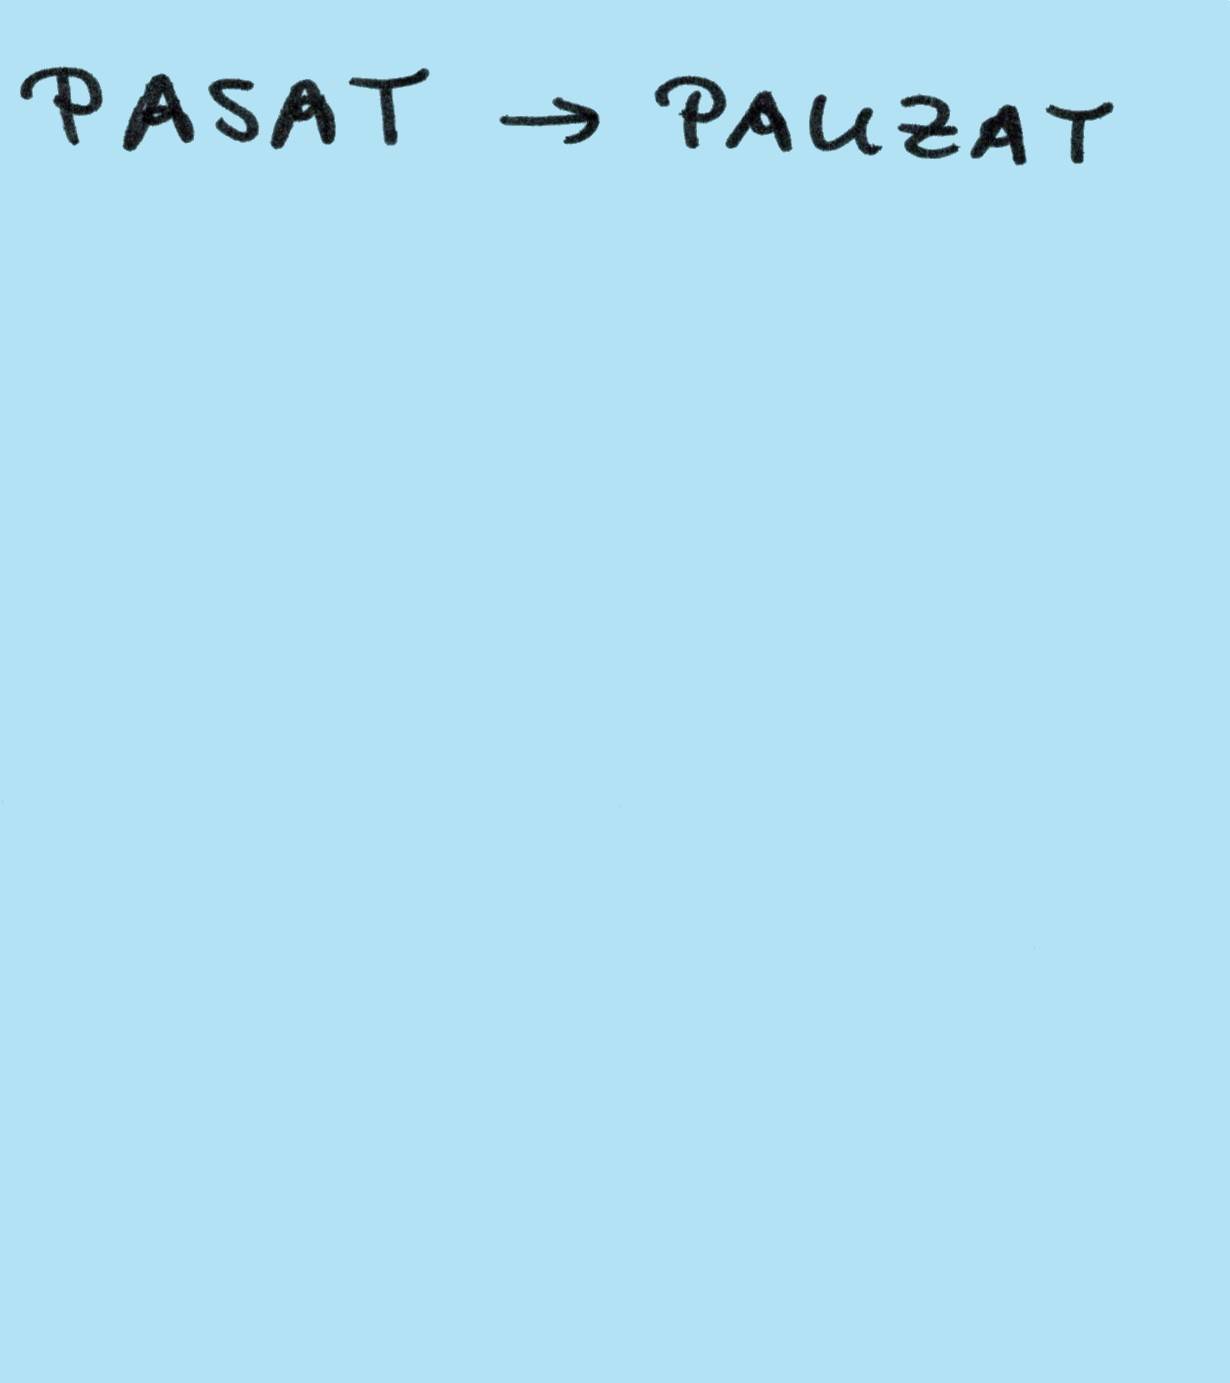 PASAT → PAUZAT